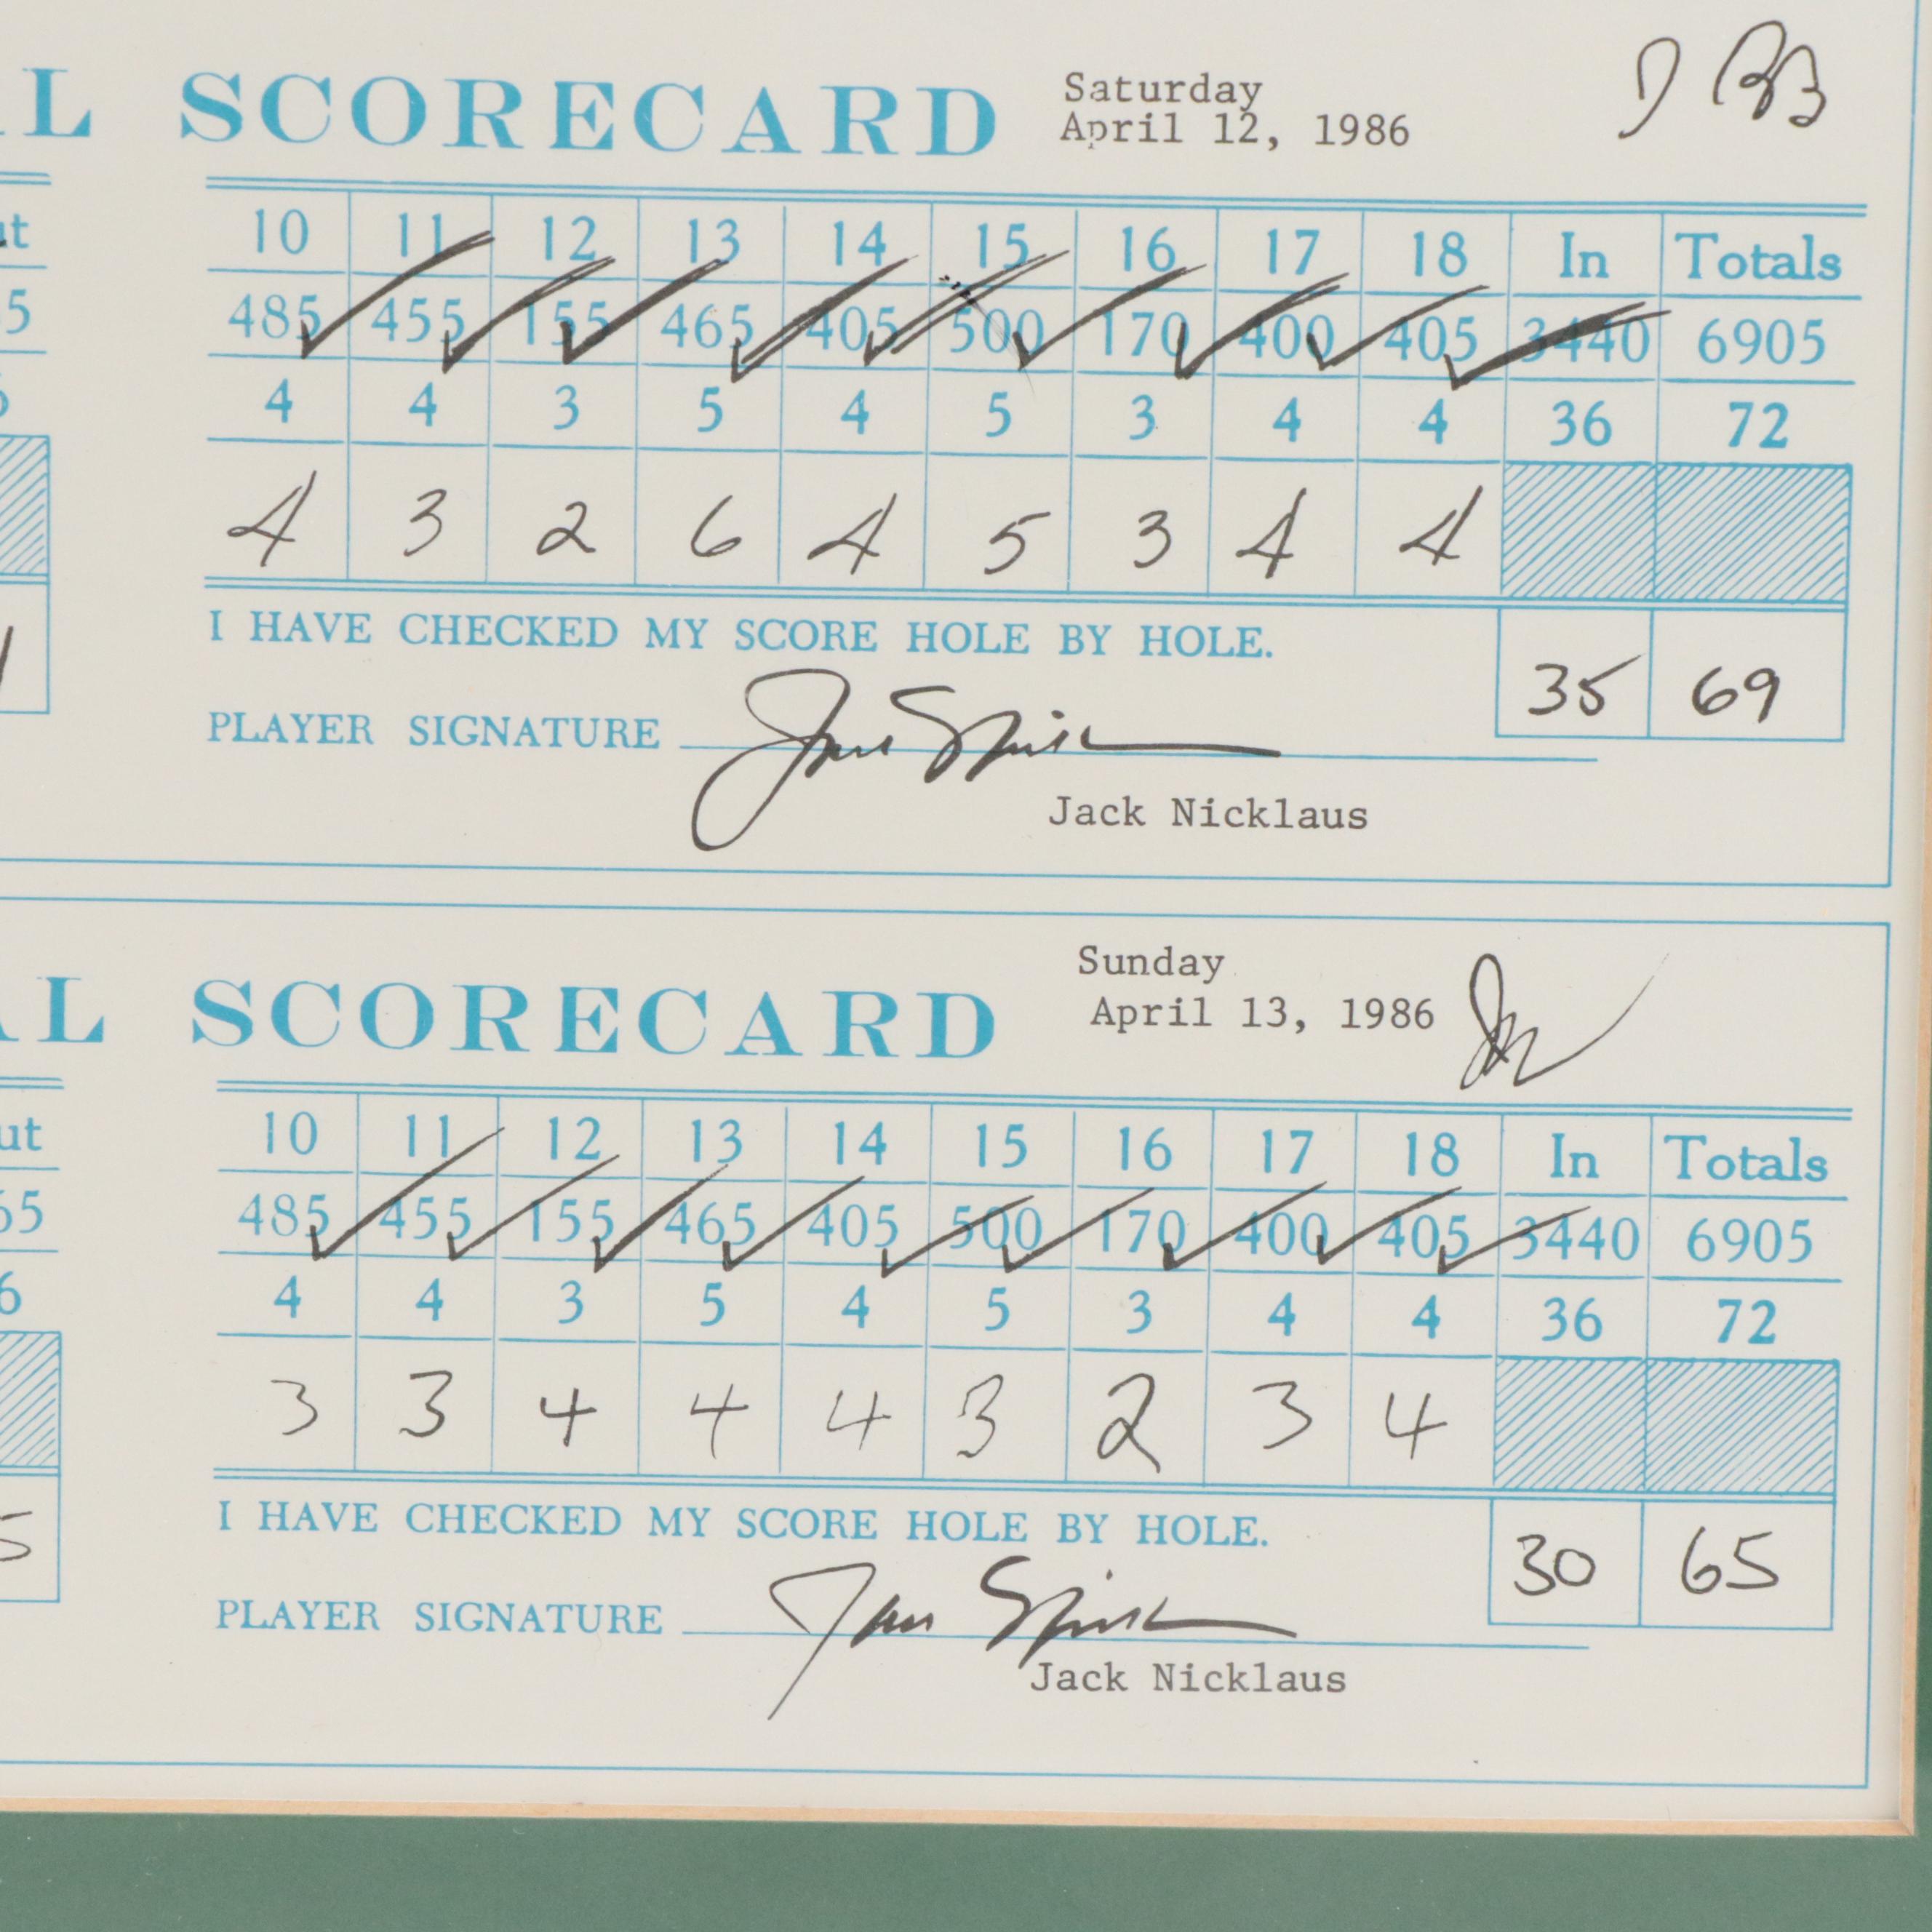 L SCORECARD Saturday
April 12, 1986
ut 10 11 12 13 14 15 16 17 18 In Totals
5 485 455 155 465 405 500 170 400 405 3440 6905
6 4 4 3 5 4 5 3 4 4 36 72
4 3 2 6 4 5 3 4 4
I HAVE CHECKED MY SCORE HOLE BY HOLE.
35 69
PLAYER SIGNATURE
Jack Nicklaus
AL SCORECARD Sunday
April 13, 1986
ut 10 11 12 13 14 15 16 17 18 In Totals
65 485 455 155 465 405 500 170 400 405 3440 6905
6 4 4 3 5 4 5 3 4 4 36 72
3 3 4 4 4 3 2 3 4
I HAVE CHECKED MY SCORE HOLE BY HOLE.
5 30 65
PLAYER SIGNATURE
Jack Nicklaus